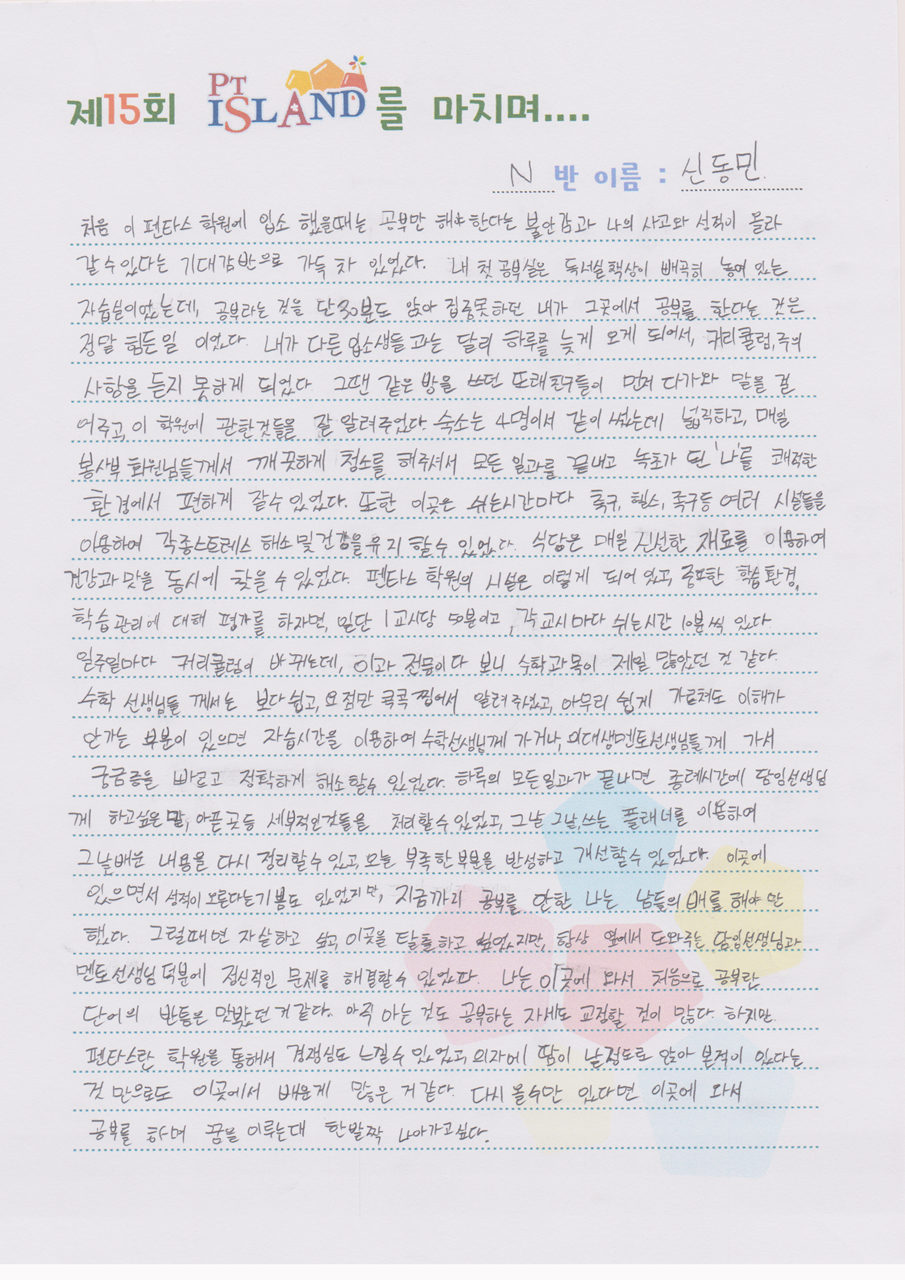 제15회 PT ISLAND를 마치며....
N 반 이름 : 신동민.
처음 이 펜타스 학원에 입소 했을때는 공부만 해야 한다는 불안감과 나의 사고와 성적이 올라
갈 수 있다는 기대감반으로 가득 차 있었다. 내 첫 공부실은 독서실책상이 빼곡히 놓여 있는
자습실이었는데, 공부라는 것을 단 30분도 앉아 집중못하던 내가 그곳에서 공부를 한다는 것은
정말 힘든일 이었다. 내가 다른 입소생들 과는 달리 하루를 늦게 오게 되어서, 커리큘럼, 주의
사항을 듣지 못하게 되었다 그땐 같은 방을 쓰던 또래친구들이 먼저 다가와 말을 걸
어주고, 이 학원에 관한것들을 잘 알려주었다 숙소는 4명이서 같이 썼는데 넓직하고, 매일
봉사부 회원님들께서 깨끗하게 청소를 해주셔서 모든 일과를 끝내고 녹초가 된 '나'를 쾌적한
환경에서 편하게 잘수 있었다. 또한 이곳은 쉬는시간마다 축구, 헬스, 족구등 여러 시설들을
이용하여 각종스트레스 해소 및 건강을 유지 할수 있었다. 식당은 매일 신선한 재료를 이용하여
건강과 맛을 동시에 찾을 수 있었다. 펜타스 학원의 시설은 이렇게 되어 있고, 중요한 학습환경,
학습관리에 대해 평가를 하자면, 일단 1교시당 50분이고, 각 교시마다 쉬는시간 10분씩 있다
일주일마다 커리큘럼이 바뀌는데, 이과 전문이다 보니 수학과목이 제일 많았던 것 같다.
수학 선생님들 께서는 보다 쉽고, 요점만 콕콕 찝어서 알려주셨고, 아무리 쉽게 가르쳐도 이해가
안가는 부분이 있으면 자습시간을 이용하여 수학선생님께 가거나, 의대생멘토선생님들께 가서
궁금증을 빠르고 정확하게 해소할수 있었다. 하루의 모든일과가 끝나면 종례시간에 담임선생님
께 하고싶은 말, 아픈곳등 세부적인것들을 처리할수 있었고, 그날 그날,쓰는 플래너를 이용하여
그날배운 내용을 다시 정리할수 있고, 오늘 부족한부분을 반성하고 개선할수 있었다. 이곳에
있으면서 성적이 오른다는기쁨도 있었지만, 지금까지 공부를 안한 나는 남들의 배를 해야 만
했다. 그럴때면 자살하고 싶고, 이곳을 탈출하고 싶었지만, 항상 옆에서 도와주는 담임선생님과
멘토선생님 덕분에 정신적인 문제를 해결할수 있었다. 나는 이곳에 와서 처음으로 공부란
단어의 반틈은 맛봤던 거 같다. 아직 아는 것도 공부하는 자세도 교정할 것이 많다. 하지만
펜타스란 학원을 통해서 경쟁심도 느낄수 있었고, 의자에 땀이 날정도로 앉아 본적이 있다는
것 만으로도 이곳에서 배운게 많은 거 같다. 다시 올수만 있다면 이곳에 와서
공부를 하며 꿈을 이루는대 한발짝 나아가고싶다.